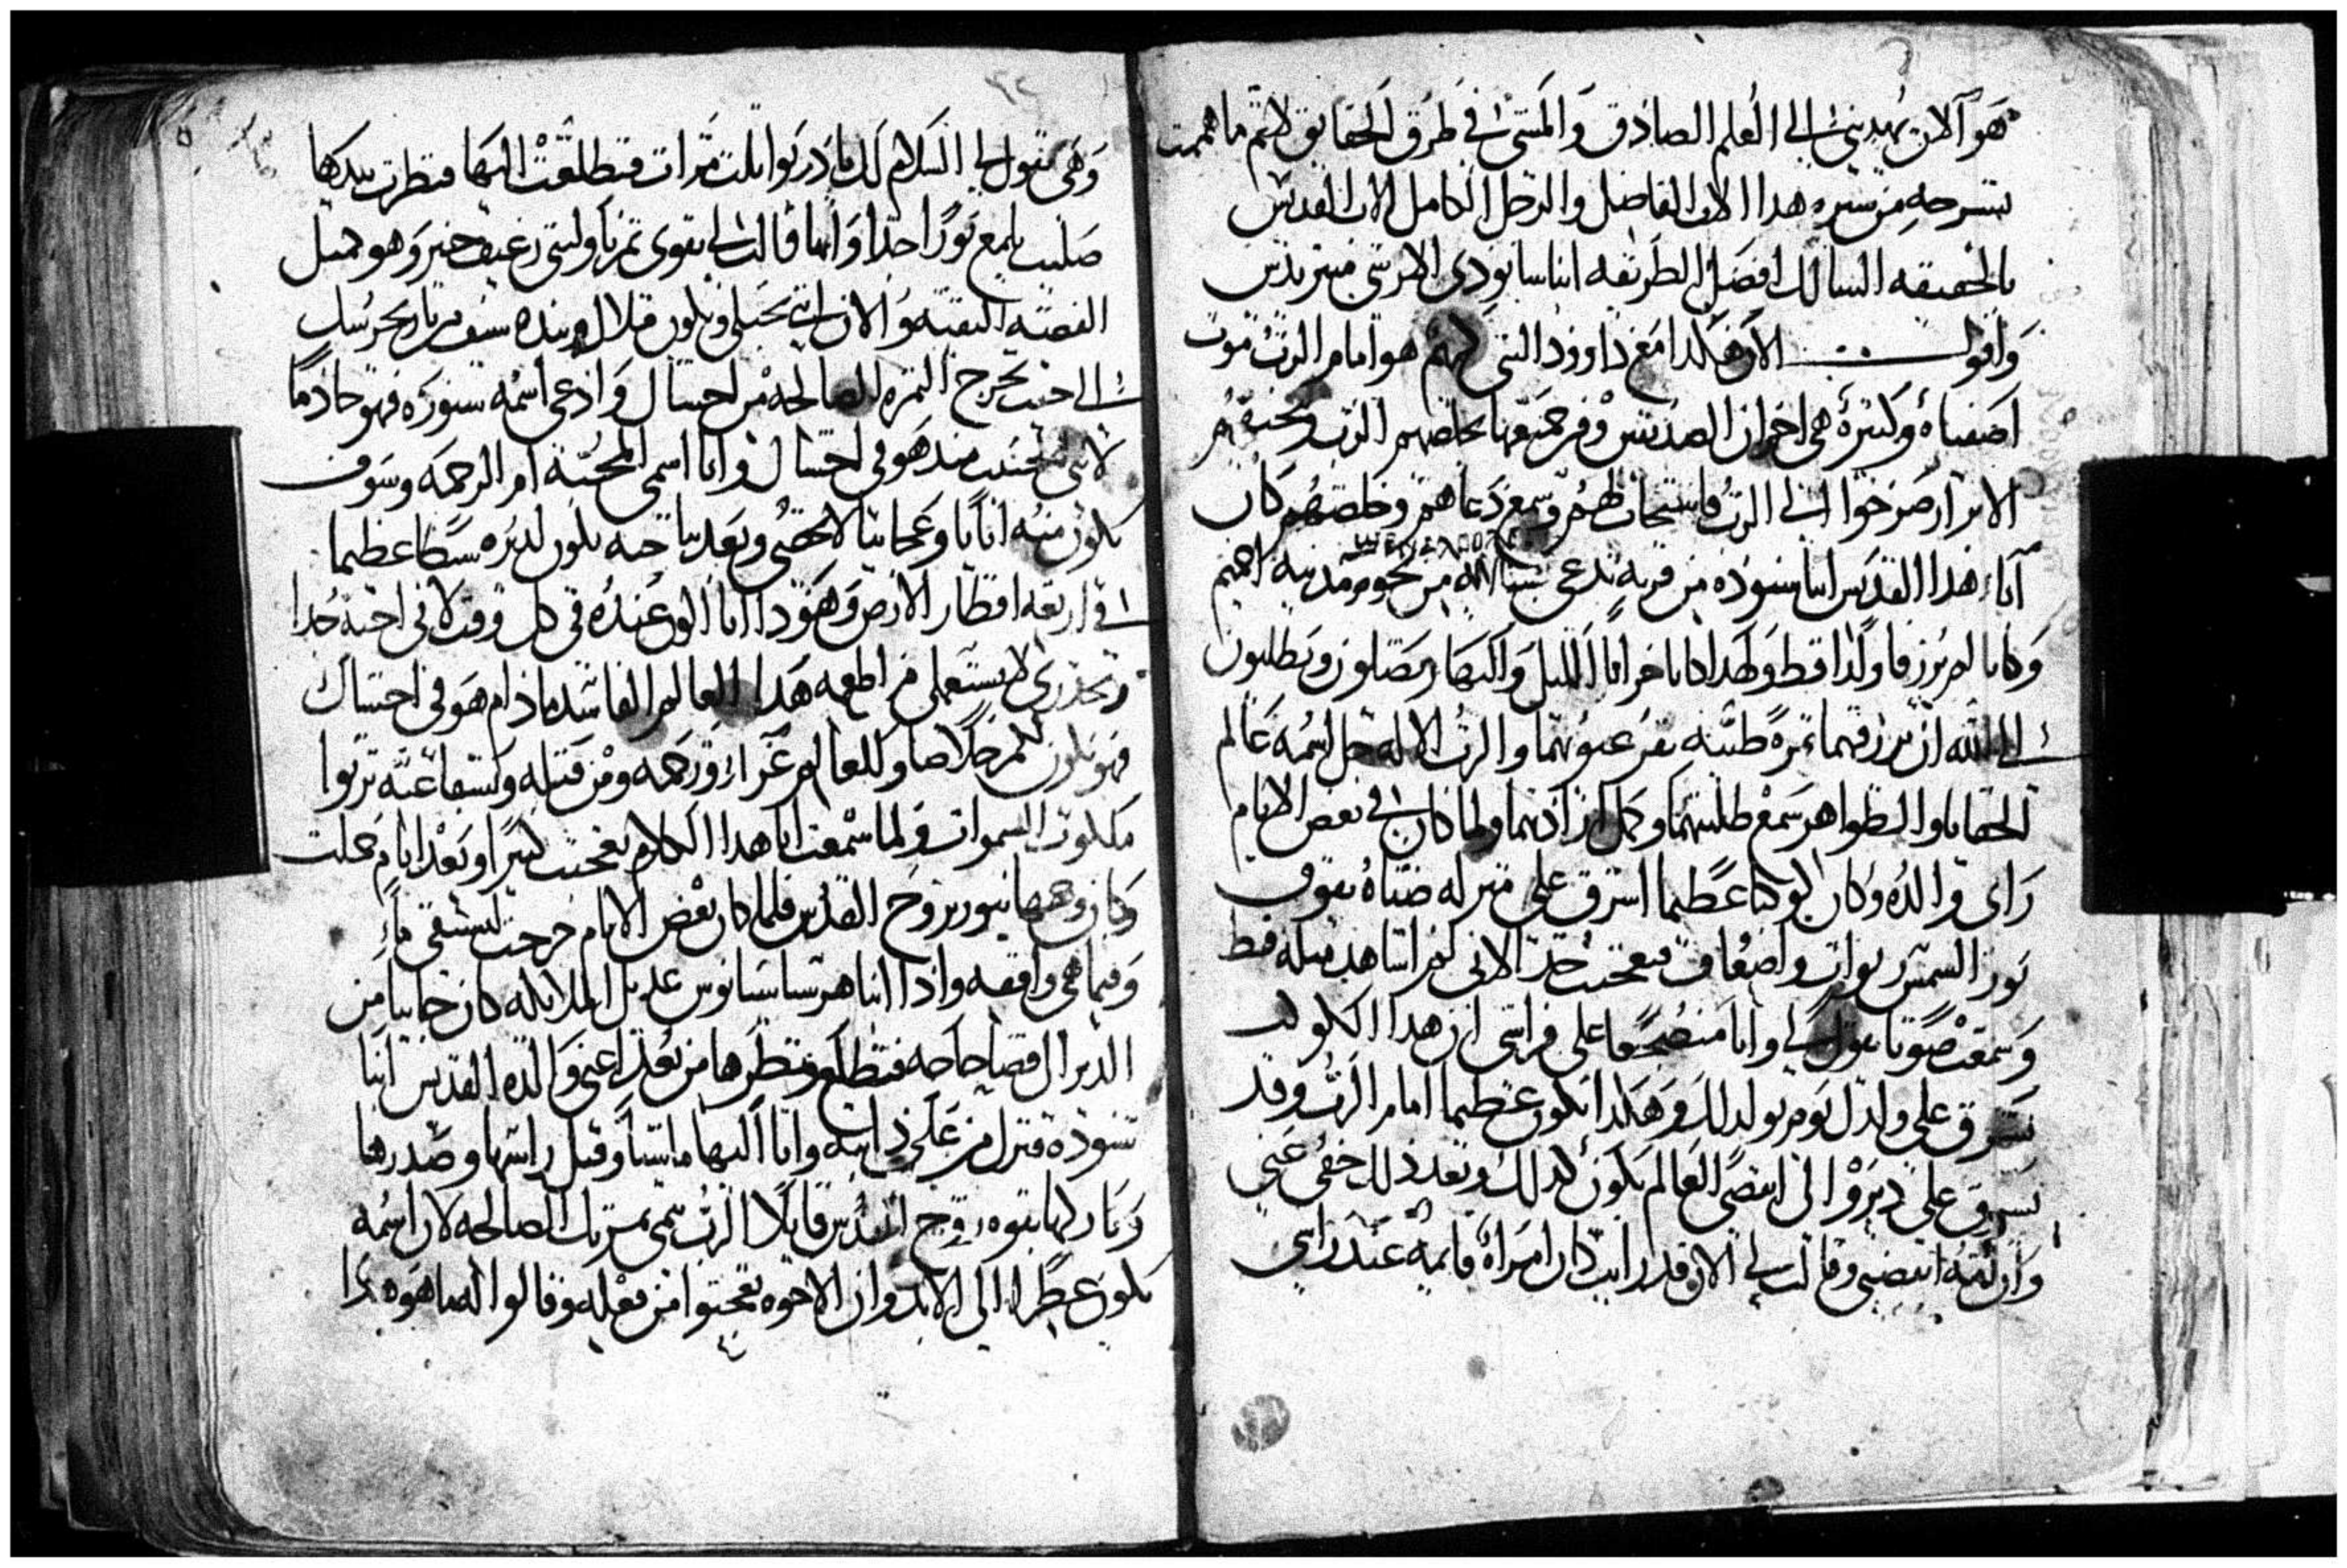 هو الان يهديني الى العلم الصادق والمشي في طرق الحقايق لاتم ما هممت
بشرحه من سيره هدا الاب الفاضل والرجل الكامل الاب القديس
بالحقيقه السالك افضل الطريقه انبا شنوده ارشي منتريدس
واقول الان هكدا مع داوود النبي كريم هو امام الرب موت
اصفياه وكثيرة هي احزان الصديقين ومن جميعها يخلصهم الرب وبحبهم
الابرار صرخوا الى الرب فاستجاب لهم وسمع دعاهم وخلصهم كان
آباء هدا القديس انبا شنوده من قريه تدعى شنلاله من تخوم مدينه اخميم
وكانا لم يرزقا ولدا قط ولهدا كانا خوافا الليل والنهار يصلون ويطلبون
الى الله ان يرزقهما ثمرة طيبه تقر عيونهما والرب الاله جل اسمه عالم
الخفايا والظواهر سمع طلبتهما وكمل ارادتهما ولما كان في بعض الايام
راى والده وكان كوكبا عظيما اشرق على منزله ضياه يفوق
نور الشمس ربوات واضعاف فتعجبت جدا لاني لم اشاهد مثله قط
وسمعت صوتا يقول لي وانا منضجعا على فراشي ان هدا الكوكب
يشرق على ولدك يوم يولد لك وهكدا يكون عظيما امام الرب وقد
يشرق على ديره والى انقضى العالم يكون كدلك وبعد ذلك خفي عني
وان امه انتصبت وقالت لي الان قد رايت كان امراة قايمه عند راسي
وهي تقول لي السلام لك يا دربوا ثلت مرات فتطلعت اليها فنظرت بيدها
صليب يلمع نورا جدا وانها قالت لي بقوى تمزنا ولتني رغيف خبز وهو مثل
الفضه النقيه والان انتي تحبلي ويكون ملاك الرب بيده سيف من نار يحرسك
الى حيث يخرج الثمره الصالحه من احشاك وادعي اسمه شنوده فهو خادما
لاني تحننت مند هو في احشاك وانا اسمي المحبة ام الرحمه وسوف
يكون منه اياتا وعجايبا لا تحصى وبعد نياحته يكون لديره سكا عظيما
في اربعه اقطار الارض وهو دا انا اكون عنده في كل وقت لاني احبه جدا
وتحذري لا تستعملي من اطعمه هدا العالم الفاسد ما دام هو في احشاك
فهو يكون لكم خلاصا وللعالم عزاء ورحمه ومن قبله وبشفاعته ترثوا
ملكوت السموات ولما سمعت انا هدا الكلام تعجبت كثيرا وبعد ايام حملت
وكان وجهها ينور بروح القدس فلما كان بعض الايام خرجت لتستقي ماء
وفيما هي واقفه واذا انبا هرسياسيانوس عديل الملايكه كان خارجا من
الدير الى قضا حاجه فتطلع ونظرها من بعد اعني والدة القديس انبا
شنوده فنزل من على دابته واتا اليها ماشيا وقبل راسها وصدرها
وباركها بقوه روح القدس قايلا الرب ينمي ثمرتك الصالحه لان اسمه
يكون عطرا الى الابد وان الاخوه تعجبوا من فعله وقالوا له ما هو هدا